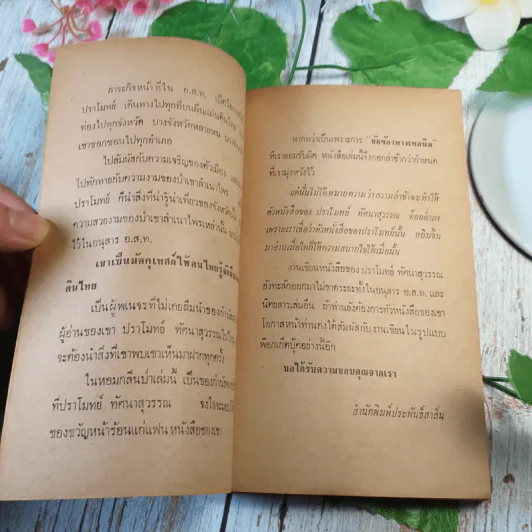 ภาระกิจหน้าที่ใน อ.ส.ท.
ปราโมทย์ เดินทางไปทุกที่บนผืนแผ่นดินไทย
ท่องไปทุกจังหวัด บางจังหวัดหลายหน
เขาซอกซอนไปทุกอำเภอ
ไปสัมผัสกับความเจริญของตัวเมือง
ไปทักทายกับความงามของป่าเขาลำเนาไพร
ปราโมทย์ ก็นำสิ่งที่น่ารู้น่าเที่ยวของจังหวัด
ความสวยงามของป่าเขาลำเนาไพรเหล่านั้น
ไว้ในอนุสาร อ.ส.ท.
เขาเป็นมัคคุเทศก์ให้คนไทยรู้จัก
ดินไทย
เป็นผู้พเนจรที่ไม่เคยลืมนำของกำนัล
ผู้อ่านของเขา ปราโมทย์ ทัศนาสุวรรณ
จะต้องนำสิ่งที่เขาพบเขาเห็นมาฝากทุกครั้ง
ในหอมกลิ่นป่าเล่มนี้ เป็นของกำนัล
ที่ปราโมทย์ ทัศนาสุวรรณ
ของขวัญหน้าร้อนแก่แฟนหนังสือของเขา
หากทว่าเป็นเพราะการ "ขัดข้องทางเทคนิค"
ที่เรายอมรับผิด หนังสือเล่มนี้จึงออกล่าช้ากว่ากำหนด
ที่เรามุ่งหวังไว้
แต่นั่นไม่ได้หมายความว่าความล่าช้าจะทำให้
ตัวหนังสือของ ปราโมทย์ ทัศนาสุวรรณ ด้อยค่าลง
เพราะเราเชื่อว่าตัวหนังสือของปราโมทย์นั้น หยิบขึ้น
มาอ่านเมื่อใดก็ให้ความสบายใจได้เมื่อนั้น
งานเขียนหนังสือของ ปราโมทย์ ทัศนาสุวรรณ
ยังทะลักออกมาไม่ขาดระยะทั้งในอนุสาร อ.ส.ท. และ
นิตยสารเล่มอื่น ถ้าท่านยังต้องการตัวหนังสือของเขา
โอกาสหน้าท่านคงได้สัมผัสกับงานเขียนในรูปแบบ
พ็อกเก็ตบุ๊คอย่างนี้อีก
ขอได้รับความขอบคุณจากเรา
สำนักพิมพ์ประพันธ์สาส์น